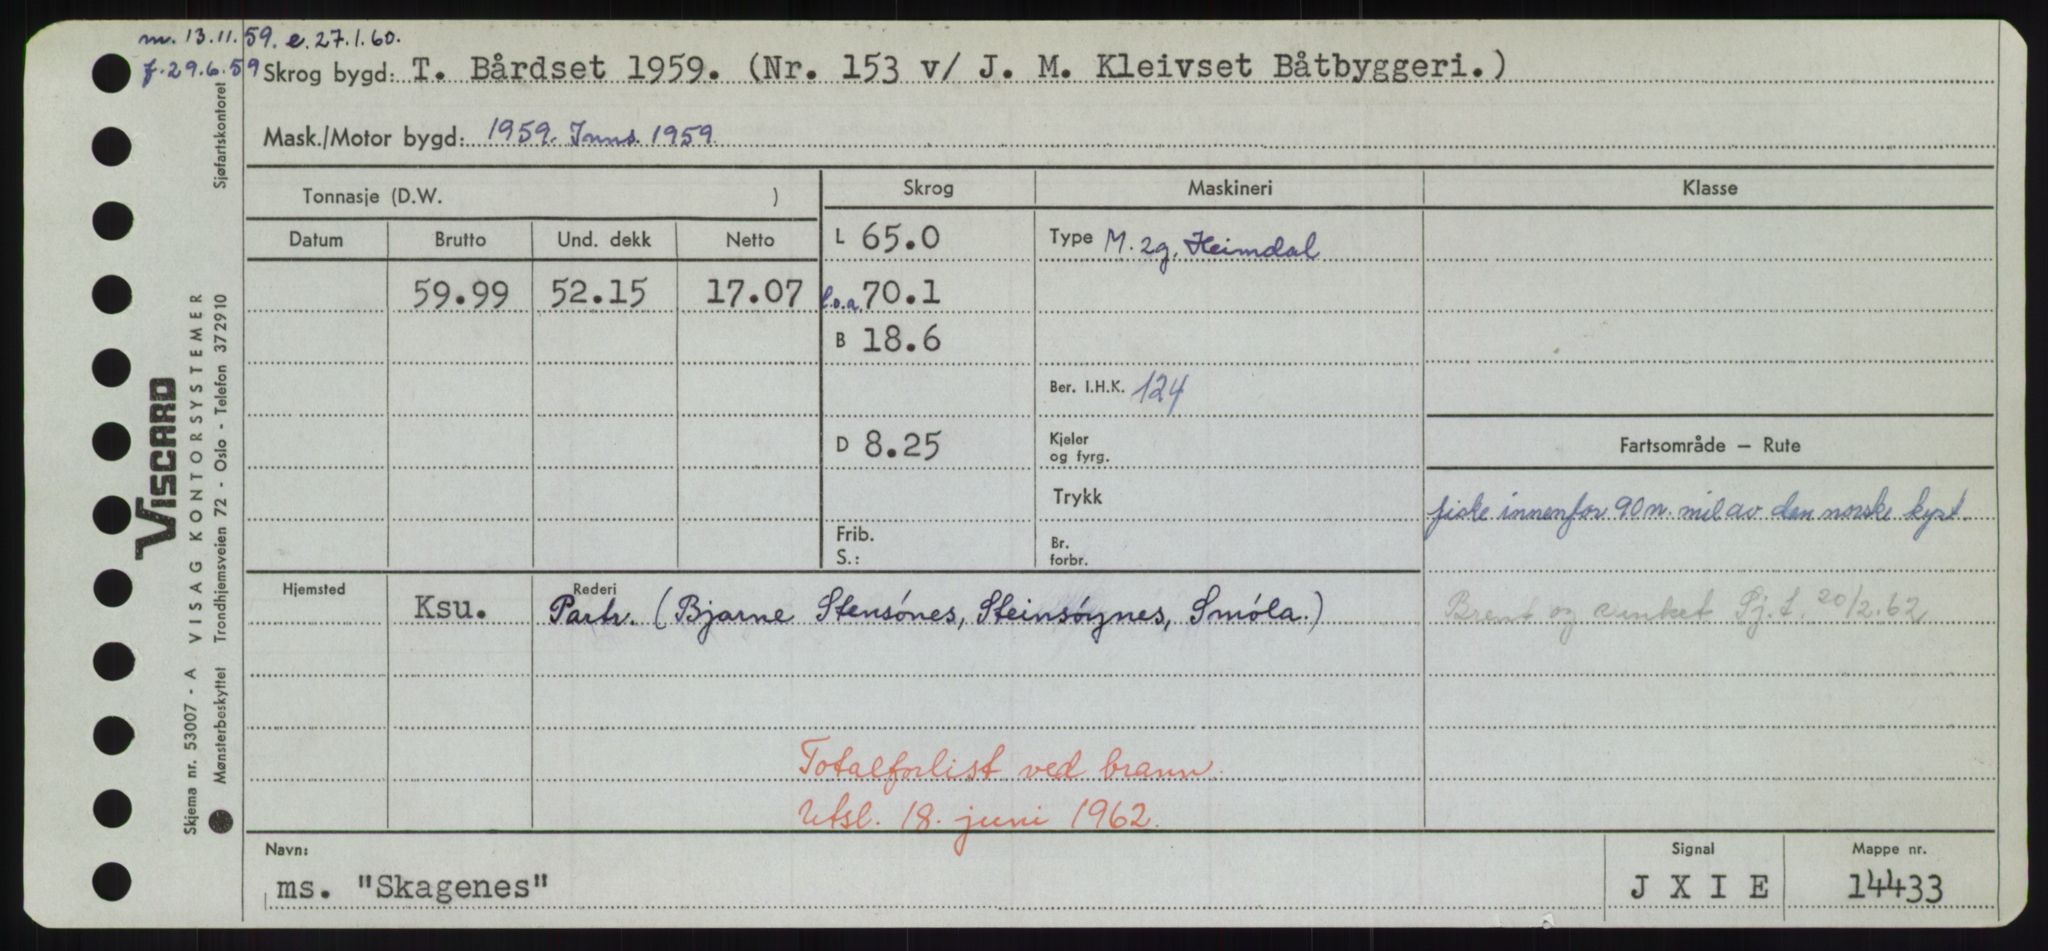 m. 13.11.59. e. 27.1.60.
f. 29.6.59
Skrog bygd: T. Bårdset 1959. (Nr. 153 v/ J. M. Kleivset Båtbyggeri.)
Mask./Motor bygd: 1959. Inns. 1959
Tonnasje (D.W. )
Skrog
Maskineri
Klasse
Datum Brutto Und. dekk Netto
L 65.0
Type M. 2g. Heimdal
59.99 52.15 17.07
l.o.a. 70.1
B 18.6
Ber. I.H.K. 124
D 8.25
Kjeler
og fyrg.
Fartsområde — Rute
Trykk
fiske innenfor 90 n. mil av den norske kyst.
Frib.
S.:
Br.
forbr.
Hjemsted
Rederi
Ksu.
Partr. (Bjarne Stensónes, Steinsóynes, Smóla.)
Brent og sunket Sj.t. 20/2.62
Totalforlist ved brann.
Utsl. 18. juni 1962.
Navn:
ms. "Skagenes"
Signal
J X I E
Mappe nr.
14433
Skjema nr. 53007 - A VISAG KONTORSYSTEMER
VISCARD
Mønsterbeskyttet Trondhjemsveien 72 - Oslo - Telefon 372910
Sjøfartskontoret